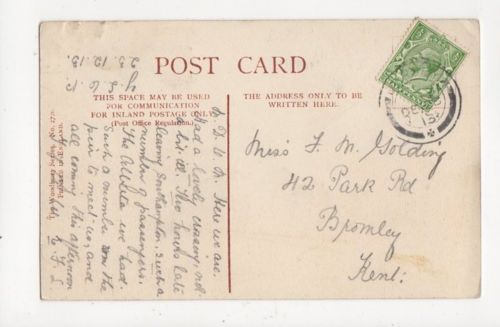 POST CARD
THIS SPACE MAY BE USED
FOR COMMUNICATION
FOR INLAND POSTAGE ONLY
(Post Office Regulation.)
THE ADDRESS ONLY TO BE
WRITTEN HERE.
Miss F. M. Golding
42 Park Rd
Bromley
Kent.
23.12.13.
Here we are.
Had a lovely crossing, not
a bit ill. Two hours late
leaving Southampton, such a
number of passengers.
The we had.
Such a number on the
pier to meet us, and
all coming this afternoon
Printed in England.